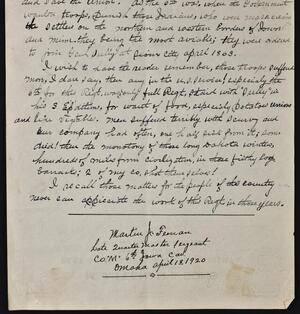 and save the Union. As the 6th was, when the Government
wanted troops, Punish those Indians, who were massacreing
the Settlers on the northern and western borders of Iowa
and Minn, they being the most avaible; they were ordered
to join Genl Sully at Sioux City april 1863.
I wish to have the reader remember, those troops suffered
more, I dare say, than any in the U.S. service, especialy the
6th for this Regt was only full Regt, staid with Sully in
his 3 Expedittions, for want of food, especialy Potatoes onions
and like vegitables. men suffered terribly with scurvy and
our company had often, one half sick from it; some
died then the monotony of those long Dakota winters,
hundreds of miles from civilization, in those filthy log
barracks; 2 of my co, shot them selves!
I recall those matters for the people of the country
never can appreciate the work of this Regt in those years.
Martin J. Feenan
late Quarter Master Sergeant
Co. "M" 6th Iowa Cav.
Omaha april 18, 1920